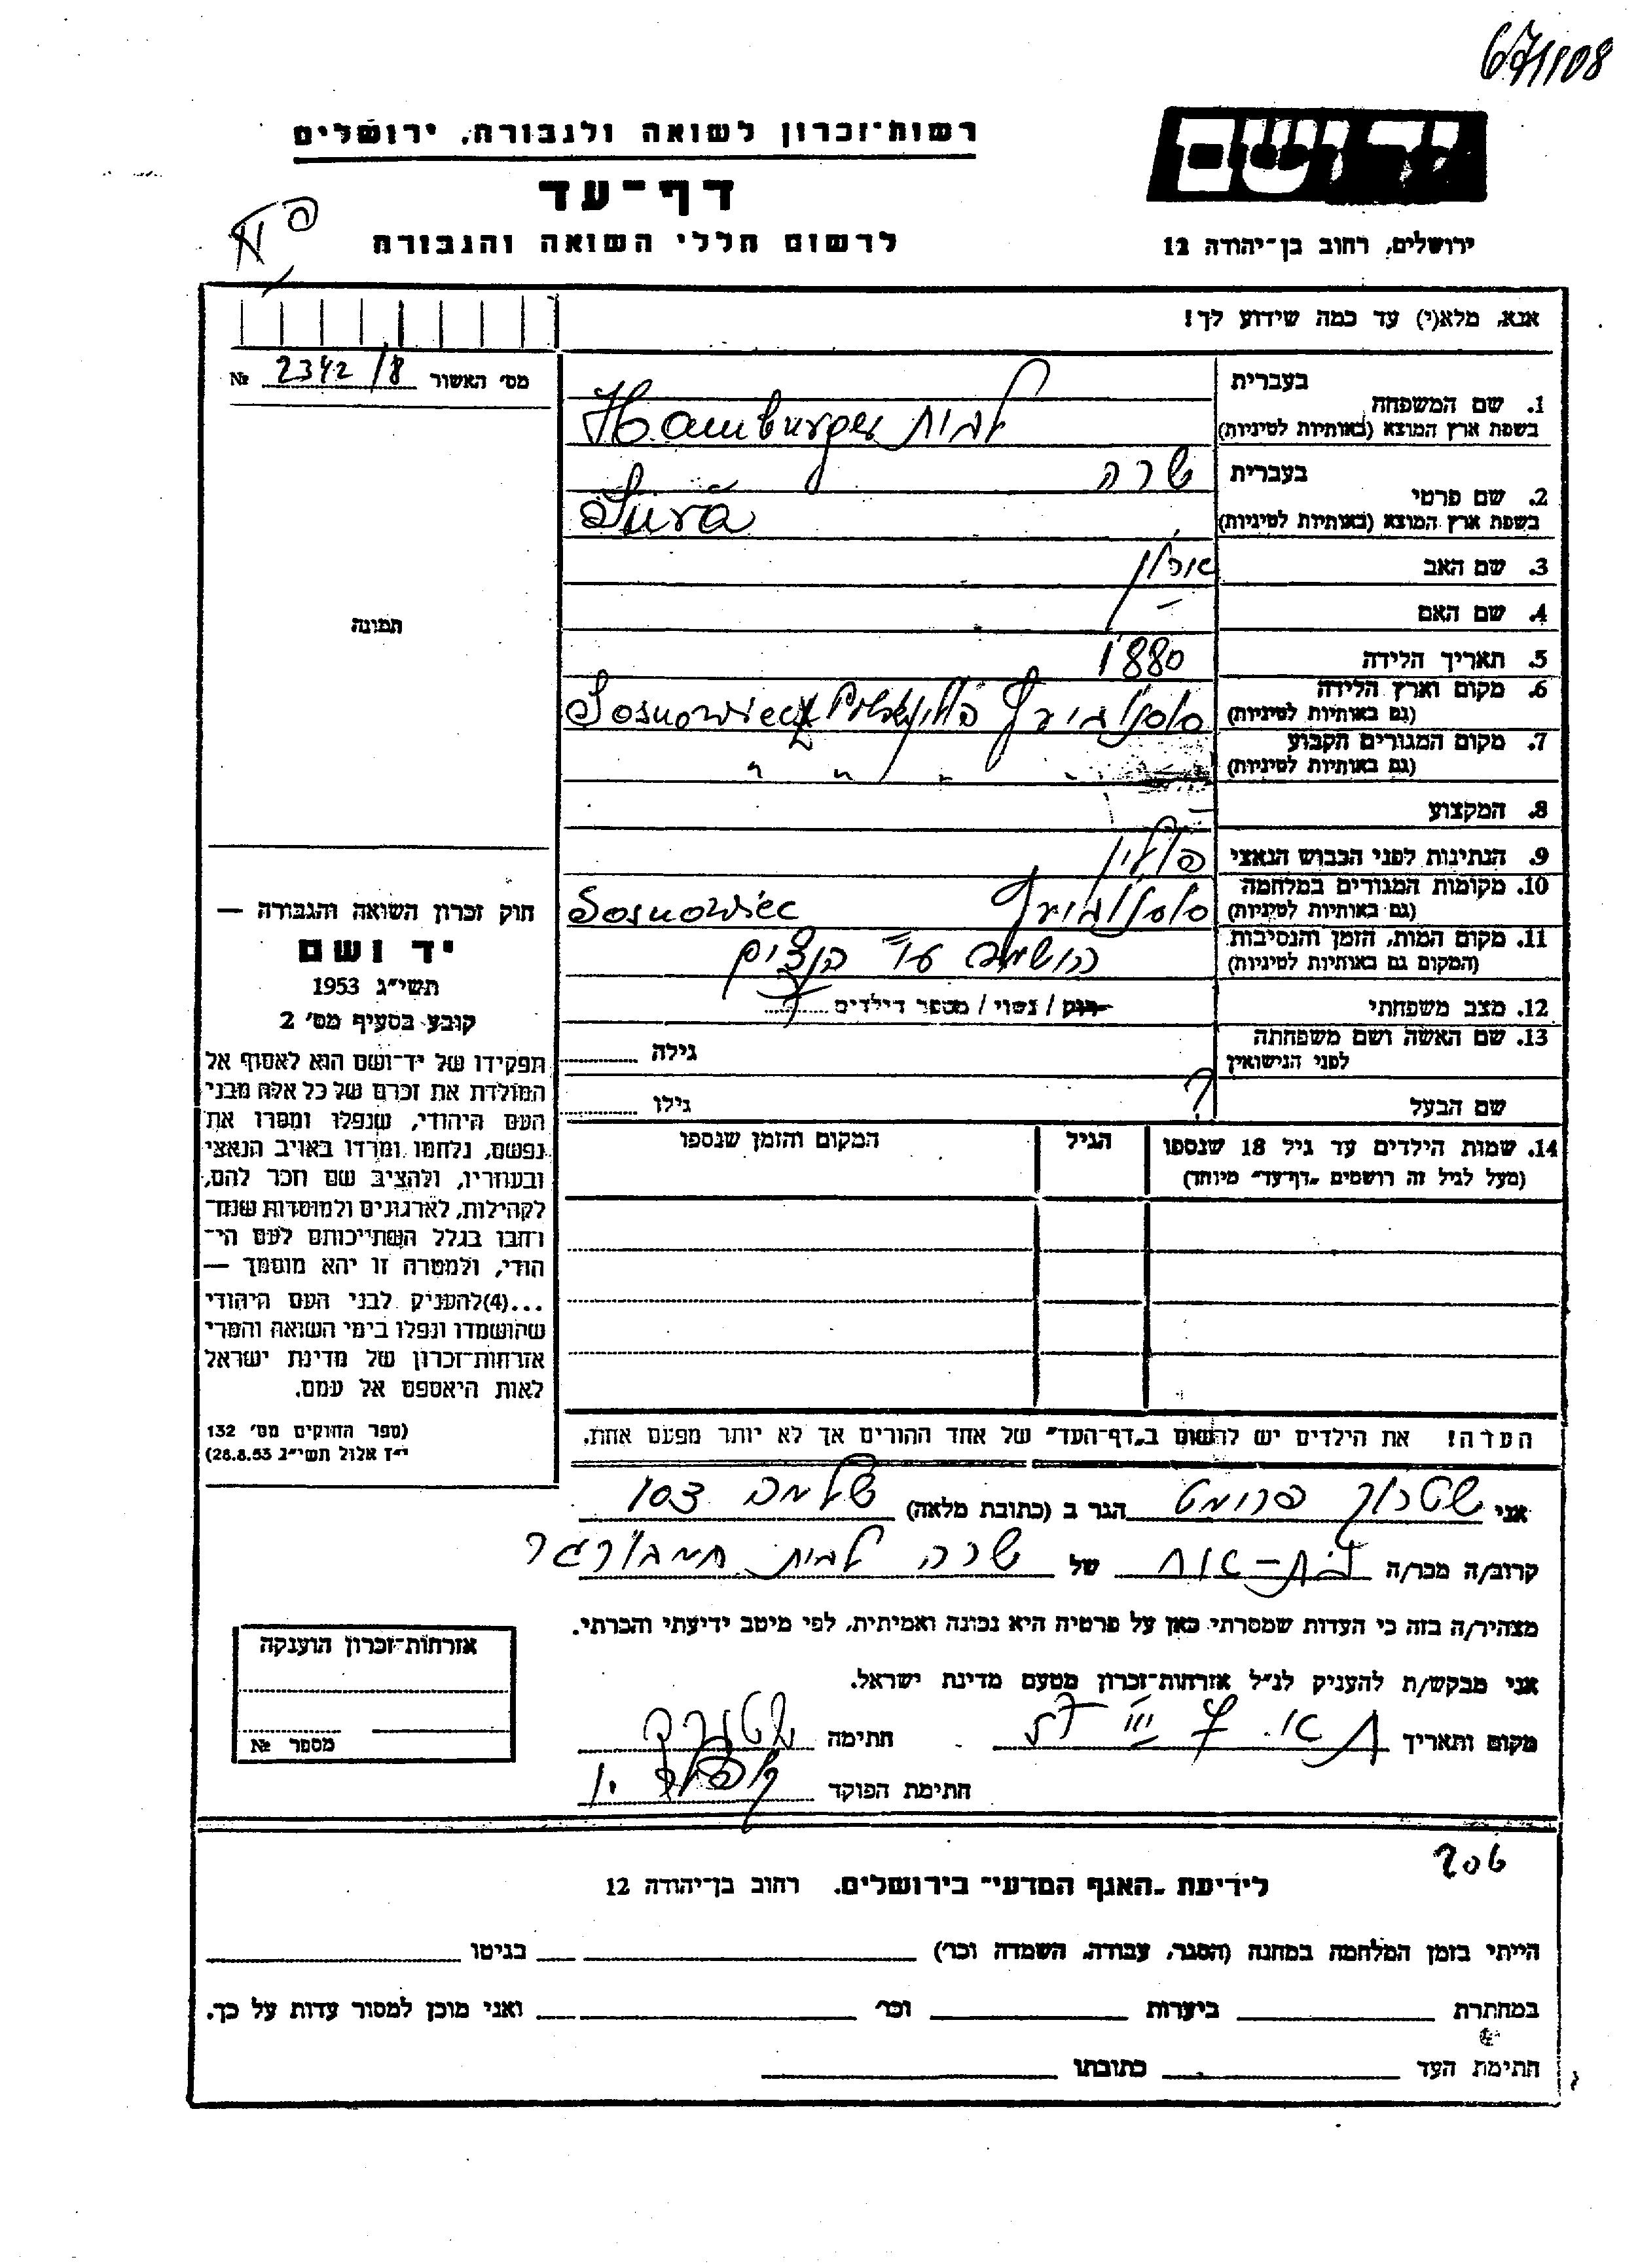 671108
יד ושם
רשות־זכרון לשואה ולגבורה, ירושלים
דף־עד
לרשום חללי השואה והגבורה
ירושלים, רחוב בן־יהודה 12
אנא, מלא(י) עד כמה שידוע לך!
מס׳ האשור 2342/8 №
1. שם המשפחה
בעברית
בשפת ארץ המוצא (באותיות לטיניות) לבית Hamburger
2. שם פרטי
בעברית שרה
בשפת ארץ המוצא (באותיות לטיניות) Sura
3. שם האב אהרון
4. שם האם –
5. תאריך הלידה 1880
6. מקום וארץ הלידה
(גם באותיות לטיניות) סוסנוביץ פולין Sosnowiec
7. מקום המגורים הקבוע
(גם באותיות לטיניות) " " " "
8. המקצוע –
9. הנתינות לפני הכבוש הנאצי פולין
10. מקומות המגורים במלחמה
(גם באותיות לטיניות) סוסנוביץ Sosnowiec
11. מקום המות, הזמן והנסיבות
(המקום גם באותיות לטיניות) הושמדה ע"י הנצים
12. מצב משפחתי רווק / נשוי / מספר הילדים ?
13. שם האשה ושם משפחתה
לפני הנישואין גילה
שם הבעל ? גילו
14. שמות הילדים עד גיל 18 שנספו
(מעל לגיל זה רושמים „דף־עד" מיוחד)
הגיל
המקום והזמן שנספו
הערה! את הילדים יש לרשום ב„דף־העד" של אחד ההורים אך לא יותר מפעם אחת.
תמונה
חוק זכרון השואה והגבורה —
יד ושם
תשי״ג 1953
קובע בסעיף מס׳ 2
תפקידו של יד־ושם הוא לאסוף אל
המולדת את זכרם של כל אלה מבני
העם היהודי, שנפלו ומסרו את
נפשם, נלחמו ומרדו באויב הנאצי
ובעוזריו, ולהציב שם וזכר להם,
לקהילות, לארגונים ולמוסדות שנח־
רחבו בגלל השתייכותם לעם הי־
הודי, ולמטרה זו יהא מוסמך —
...(4)להעניק לבני העם היהודי
שהושמדו ונפלו בימי השואה והמרי
אזרחות־זכרון של מדינת ישראל
לאות היאספם אל עמם.
(ספר החוקים מס׳ 132
י״ז אלול תשי״ג 28.8.53)
אני שטרוך פרומט הגר ב (כתובת מלאה) שלמה
קרוב/ה מכר/ה בת-אח של שרה לבית המבורגר
מצהיר/ה בזה כי העדות שמסרתי כאן על פרטיה היא נכונה ואמיתית, לפי מיטב ידיעתי והכרתי.
אני מבקש/ת להעניק לנ״ל אזרחות־זכרון מטעם מדינת ישראל.
מקום ותאריך חתימה
חתימת הפוקד
אזרחות־זכרון הוענקה
מספר №
206
לידיעת „האגף המדעי" בירושלים. רחוב בן־יהודה 12
הייתי בזמן המלחמה במחנה (הסגר, עבודה, השמדה וכו׳) בגיטו
במחתרת ביערות וכו׳ ואני מוכן למסור עדות על כך.
חתימת העד כתובתו